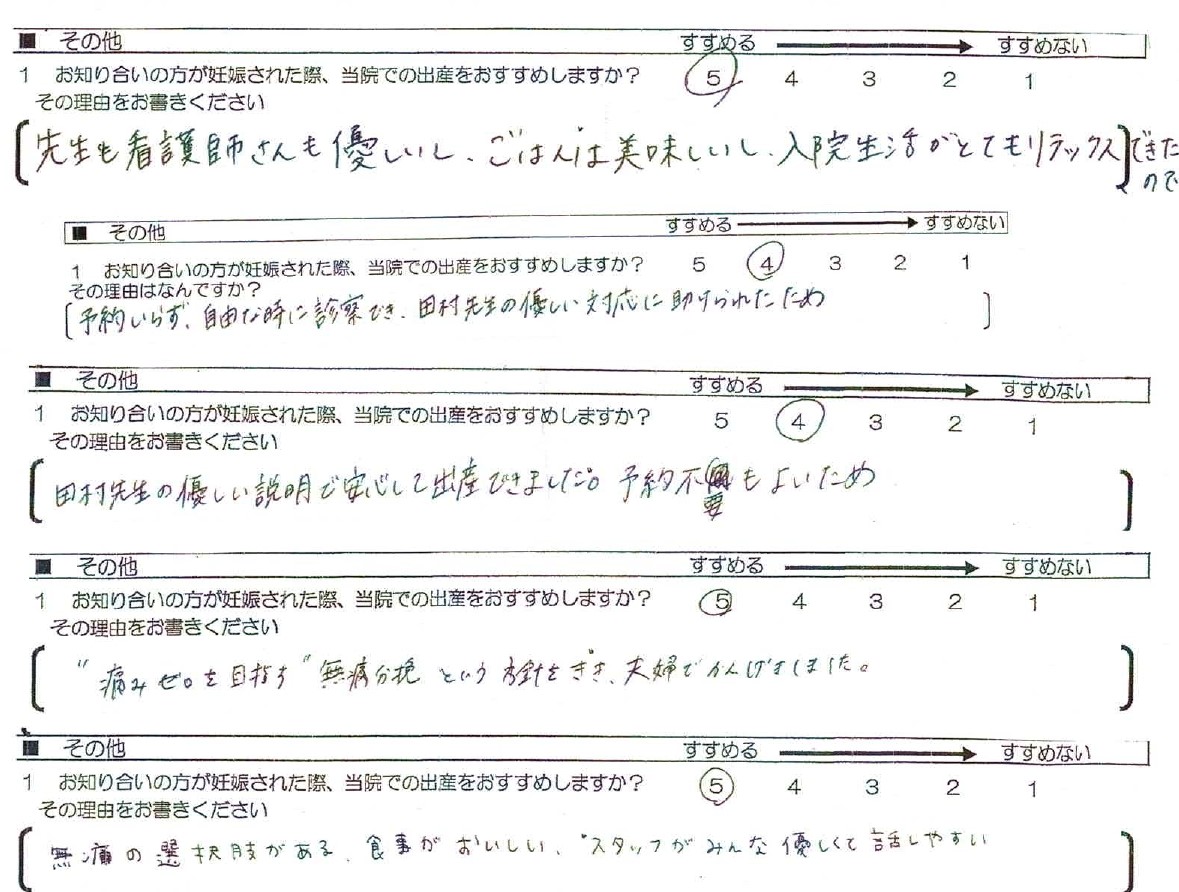 ■ その他 すすめる → すすめない
1 お知り合いの方が妊娠された際、当院での出産をおすすめしますか? 5 4 3 2 1
その理由をお書きください
先生も看護師さんも優しいし、ごはんは美味しいし、入院生活がとてもリラックスできた
ので
■ その他 すすめる → すすめない
1 お知り合いの方が妊娠された際、当院での出産をおすすめしますか? 5 4 3 2 1
その理由はなんですか?
予約いらず、自由な時に診察でき、田村先生の優しい対応に助けられたため
■ その他 すすめる → すすめない
1 お知り合いの方が妊娠された際、当院での出産をおすすめしますか? 5 4 3 2 1
その理由をお書きください
田村先生の優しい説明で安心して出産できました。予約不要もよいため
■ その他 すすめる → すすめない
1 お知り合いの方が妊娠された際、当院での出産をおすすめしますか? 5 4 3 2 1
その理由をお書きください
"痛みゼロを目指す"無痛分娩 という 方針をきき、夫婦で ました。
■ その他 すすめる → すすめない
1 お知り合いの方が妊娠された際、当院での出産をおすすめしますか? 5 4 3 2 1
その理由をお書きください
無痛の選択肢がある、食事がおいしい、スタッフがみんな優しくて話しやすい